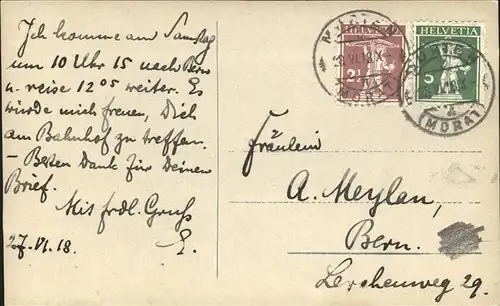 Ich komme am Samstag
um 10 Uhr 15 nach Bern
u. reise 12 05 weiter. Es
würde mich freuen, Dich
am Bahnhof zu treffen.
– Besten Dank für Deinen
Brief.
Mit frdl. Gruss
27. VI. 18. E.
HELVETIA
2½
HELVETIA
5
MURTEN
(MORAT)
(MORAT)
Fräulein
A. Meylan,
Bern.
Lerchenweg 29.